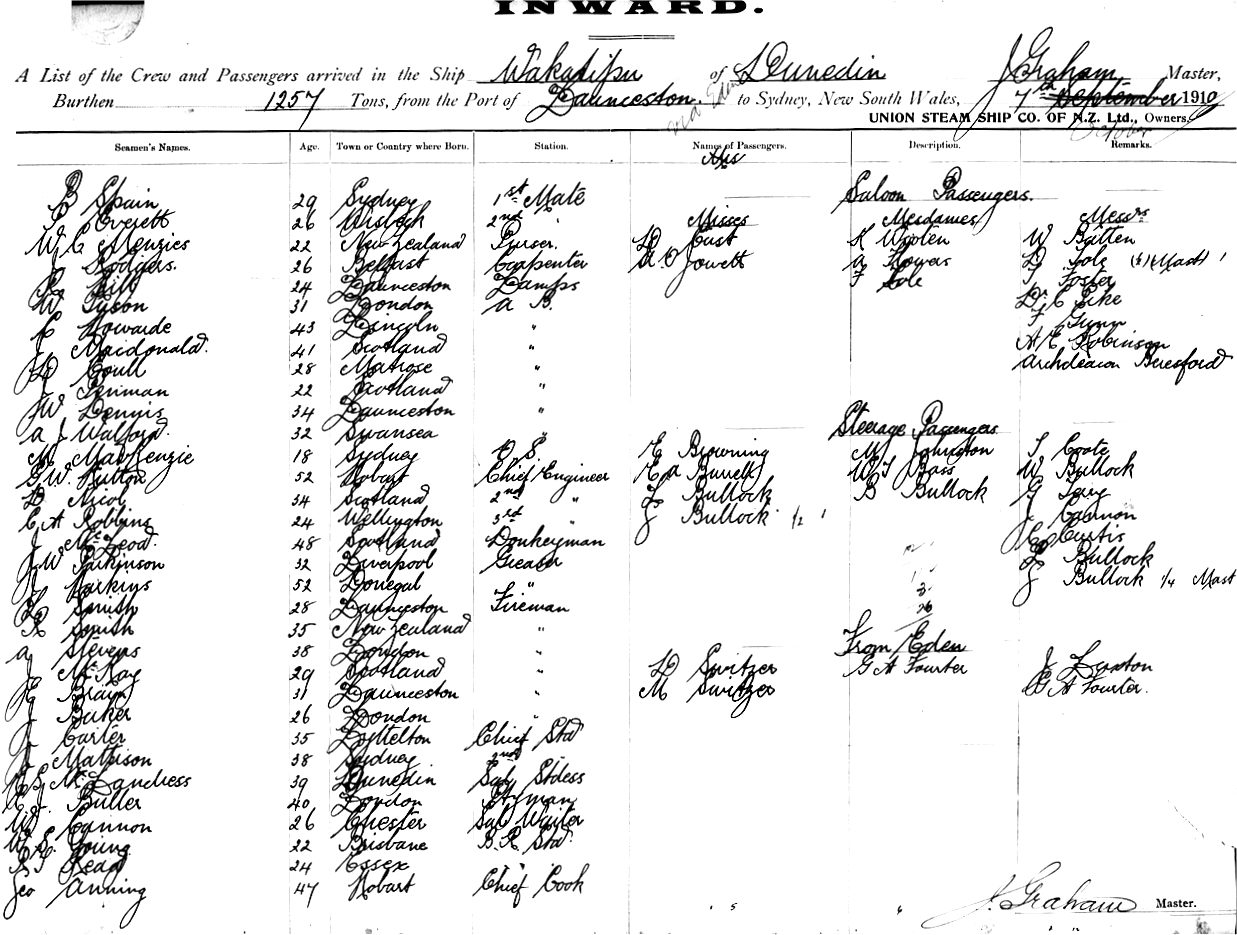 INWARD.
A List of the Crew and Passengers arrived in the Ship Wakatipu of Dunedin J Graham Master,
Burthen 1257 Tons, from the Port of Launceston via Eden to Sydney, New South Wales, 7th September 1910
October
UNION STEAM SHIP CO. OF N.Z. Ltd., Owners.
Seamen's Names. Age. Town or Country where Born. Station. Names of Passengers. Description. Remarks.
Spain 29 Sydney 1st Mate Saloon Passengers.
Everett 26 2nd " Misses Mesdames Messrs
W C Menzies 22 New Zealand Purser. East K Wooten W Batten
J Rodgers. 26 Belfast Carpenter Jowett A Flowers Sole
Hill 24 Launceston Lamps F Sole T Foster
W Tyson 31 London A B. Dr C Pike
C Howarde 43 Lincoln " F Gunn
J Macdonald. 41 Scotland " A E Robinson
Coull 28 " Archdeacon Beresford
J Penman 22 Scotland "
J W Dennis 34 Launceston "
A J Walford. 32 Swansea " Steerage Passengers
M MacKenzie 18 Sydney O.S. E Browning M Johnston T Coote
G W Hutton 52 Hobart Chief Engineer E A Burrell W J Bass W Bullock
D Nicol 34 Scotland 2nd " L Bullock B Bullock G
C A Robbins 24 Wellington 3rd " J Bullock 1/2 J Cannon
J McLeod. 48 Scotland Donkeyman Curtis
J W Parkinson 32 Liverpool Greaser L Bullock
J Harkins 52 Donegal " J Bullock 1/4 Mast
Smith 28 Launceston Fireman
R Smith 35 New Zealand " From Eden
A Stevens 38 London " D Switzer G A Fourter J Luxton
J McKay 29 Scotland " M Switzer G A Fourter.
31 Launceston "
J Baker 26 London "
J Carter 35 Lyttelton Chief Std
J Mathison 38 Sydney 2nd "
McLandress 39 Dunedin Sal Stdess
Butler 40 London Ptyman
W Cannon 26 Chester Sal Waiter
W E Young 22 Brisbane B.R. Std
R J Read 24 Essex " "
Geo Anning 47 Hobart Chief Cook
J. Graham Master.